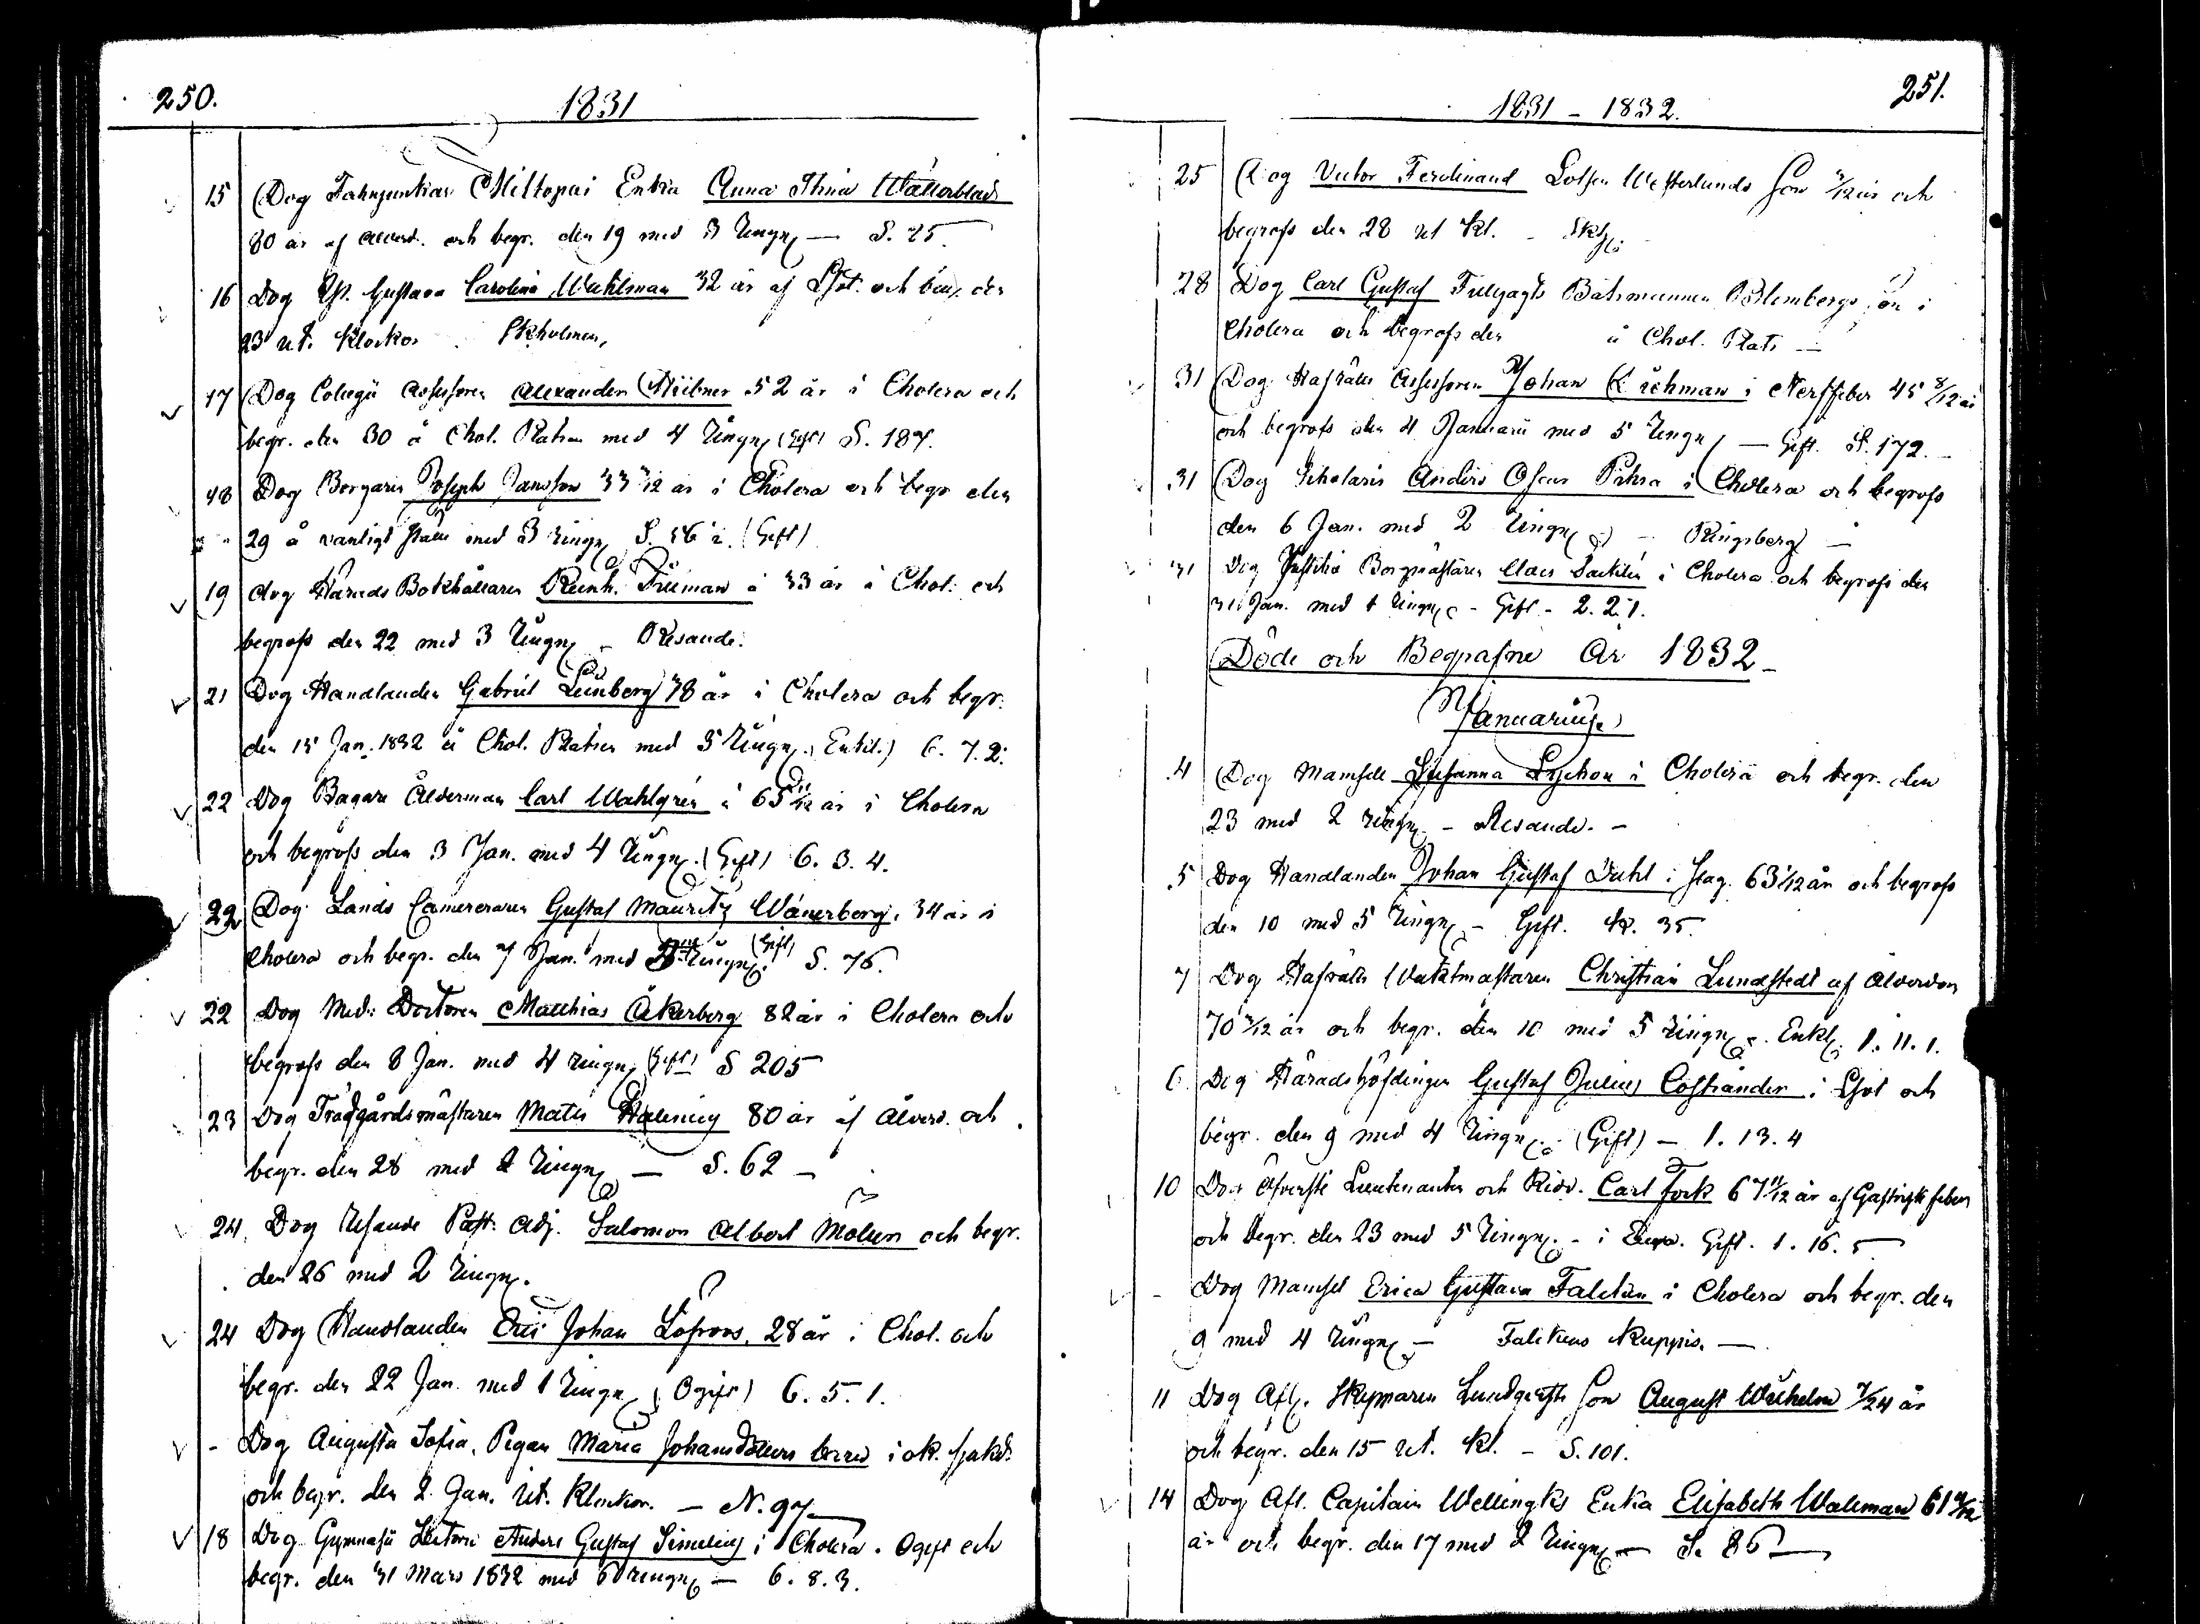 250.
1831
15 Dog Fahnjunkiar Miltopæi Enkia Anna Stina Wätterblad
80 år af ålverd. och begr. den 19 med 3 Ringn. — S. 25.
16 Dog Gustava Carolina Wahlman 32 år af Lsot. och begr. den
23 ut. Klockor. Skholmen.
17 Dog Collegii Assessoren Alexander Hübner 52 år i Cholera och
begr. den 30 å Chol. Platsen med 4 Ringn. (Gift) S. 187.
18 Dog Borgaren Joseph Jansson 33 7/12 år i Cholera och begr. den
29 å vanligt ställe med 3 ringn. S. (Gift)
19 dog Härads Bokhållaren Reinh. Friman å 33 år i Chol. och
begrofs den 22 med 3 Ringn. – Resande.
21 Dog Handlanden Gabriel 78 år i Cholera och begr.
den 15 Jan. 1832 å Chol. Platsen med 5 Ringn. (Enkl.) 6. 7. 2.
22 Dog Bagare Ålderman Carl Wahlgrén i 65 11/12 år i Cholera
och begrofs den 3 Jan. med 4 Ringn. (Gift) 6. 3. 4.
22 Dog Lands Camereraren Gustaf Mauritz Wånerberg, 34 år i
Cholera och begr. den 7 Jan. med Ringn. (Gift) S. 76.
22 Dog Med: Doctoren Matthias Åkerberg 82 år i Cholera och
begrofs den 8 Jan. med 4 ringn. (Gift) S 205
23 Dog Trädgårdsmästaren Mats 80 år af Ålverd. och
begr. den 28 med 2 Ringn. — S. 62 –
24. Dog Resande Past: Adj. Salomon Albert Molin och begr.
den 26 med 2 Ringn.
24 Dog Handlanden Eric Johan Löfroos, 28 år i Chol. och
begr. den 22 Jan. med 1 Ringn. (Ogift) 6. 5. 1.
- Dog Augusta Sofia, Pigan Maria Johansdotters barn i ok. sjukd.
och begr. den 2. Jan. ut. Klockor. — N. 97.
18 Dog Gymnasii Lectorn Anders Gustaf Simelius i Cholera. Ogift och
begr. den 31 Mars 1832 med 6 ringn. — 6. 8. 3.
1831 – 1832.
251.
25 Dog Victor Ferdinand Lotsen Westerlunds Son /12 år och
begrofs den 28 ut Kl. –
28 Dog Carl Gustaf Båtsmannen Blombergs son i
Cholera och begrofs den å Chol. Plats —
31 Dog Hofrätts Assessoren Johan Eichman i Nerffeber 45 8/12 år
och begrofs den 4 Januarii med 5 Ringn. — Gift. S. 172.
31 Dog Scholaris Anders Oscar i Cholera och begrofs
den 6 Jan. med 2 Ringn. – Ringsberg –
31 Dog Justitiæ Borgmästaren Claes i Cholera och begrofs den
Jan. med Ringn. – Gift – 2. 2. 1.
Döde och Begrafne År 1832 –
Januarius
4 Dog Mamsell Susanna i Cholera och begr. den
23 med 2 ringn. – Resande. –
5 Dog Handlanden Johan Gustaf Dahl i slag. 63 1/12 år och begrofs
den 10 med 5 Ringn. – Gift. 35.
7 Dog Hofrätts Waktmästaren Christian Lundstedt af Ålderdom
70 /12 år och begr. den 10 med 5 Ringn. Enkl. 1. 11. 1.
6 Dog Häradshöfdingen Gustaf Julius Costiander i Lsot och
begr. den 9 med 4 Ringn. (Gift) – 1. 13. 4
10 Dog Öfverste Lieutenanten och Ridd. Carl Fock 67 11/12 år af Gastrisk feber
och begr. den 23 med 5 Ringn. – i Gift. 1. 16. 5
- Dog Mamsel Erica Gustava Falcken i Cholera och begr. den
9 med 4 Ringn. — Falckens Kuppis. —
11 Dog Afl. Skepparen Lundqvists Son August Wilhelm 7/24 år
och begr. den 15 ut. Kl. – S. 101.
14 Dog Afl. Capitain Wellingks Enka Elisabeth Walman 61 /12
år och begr. den 17 med 2 Ringn. — S. 86 —